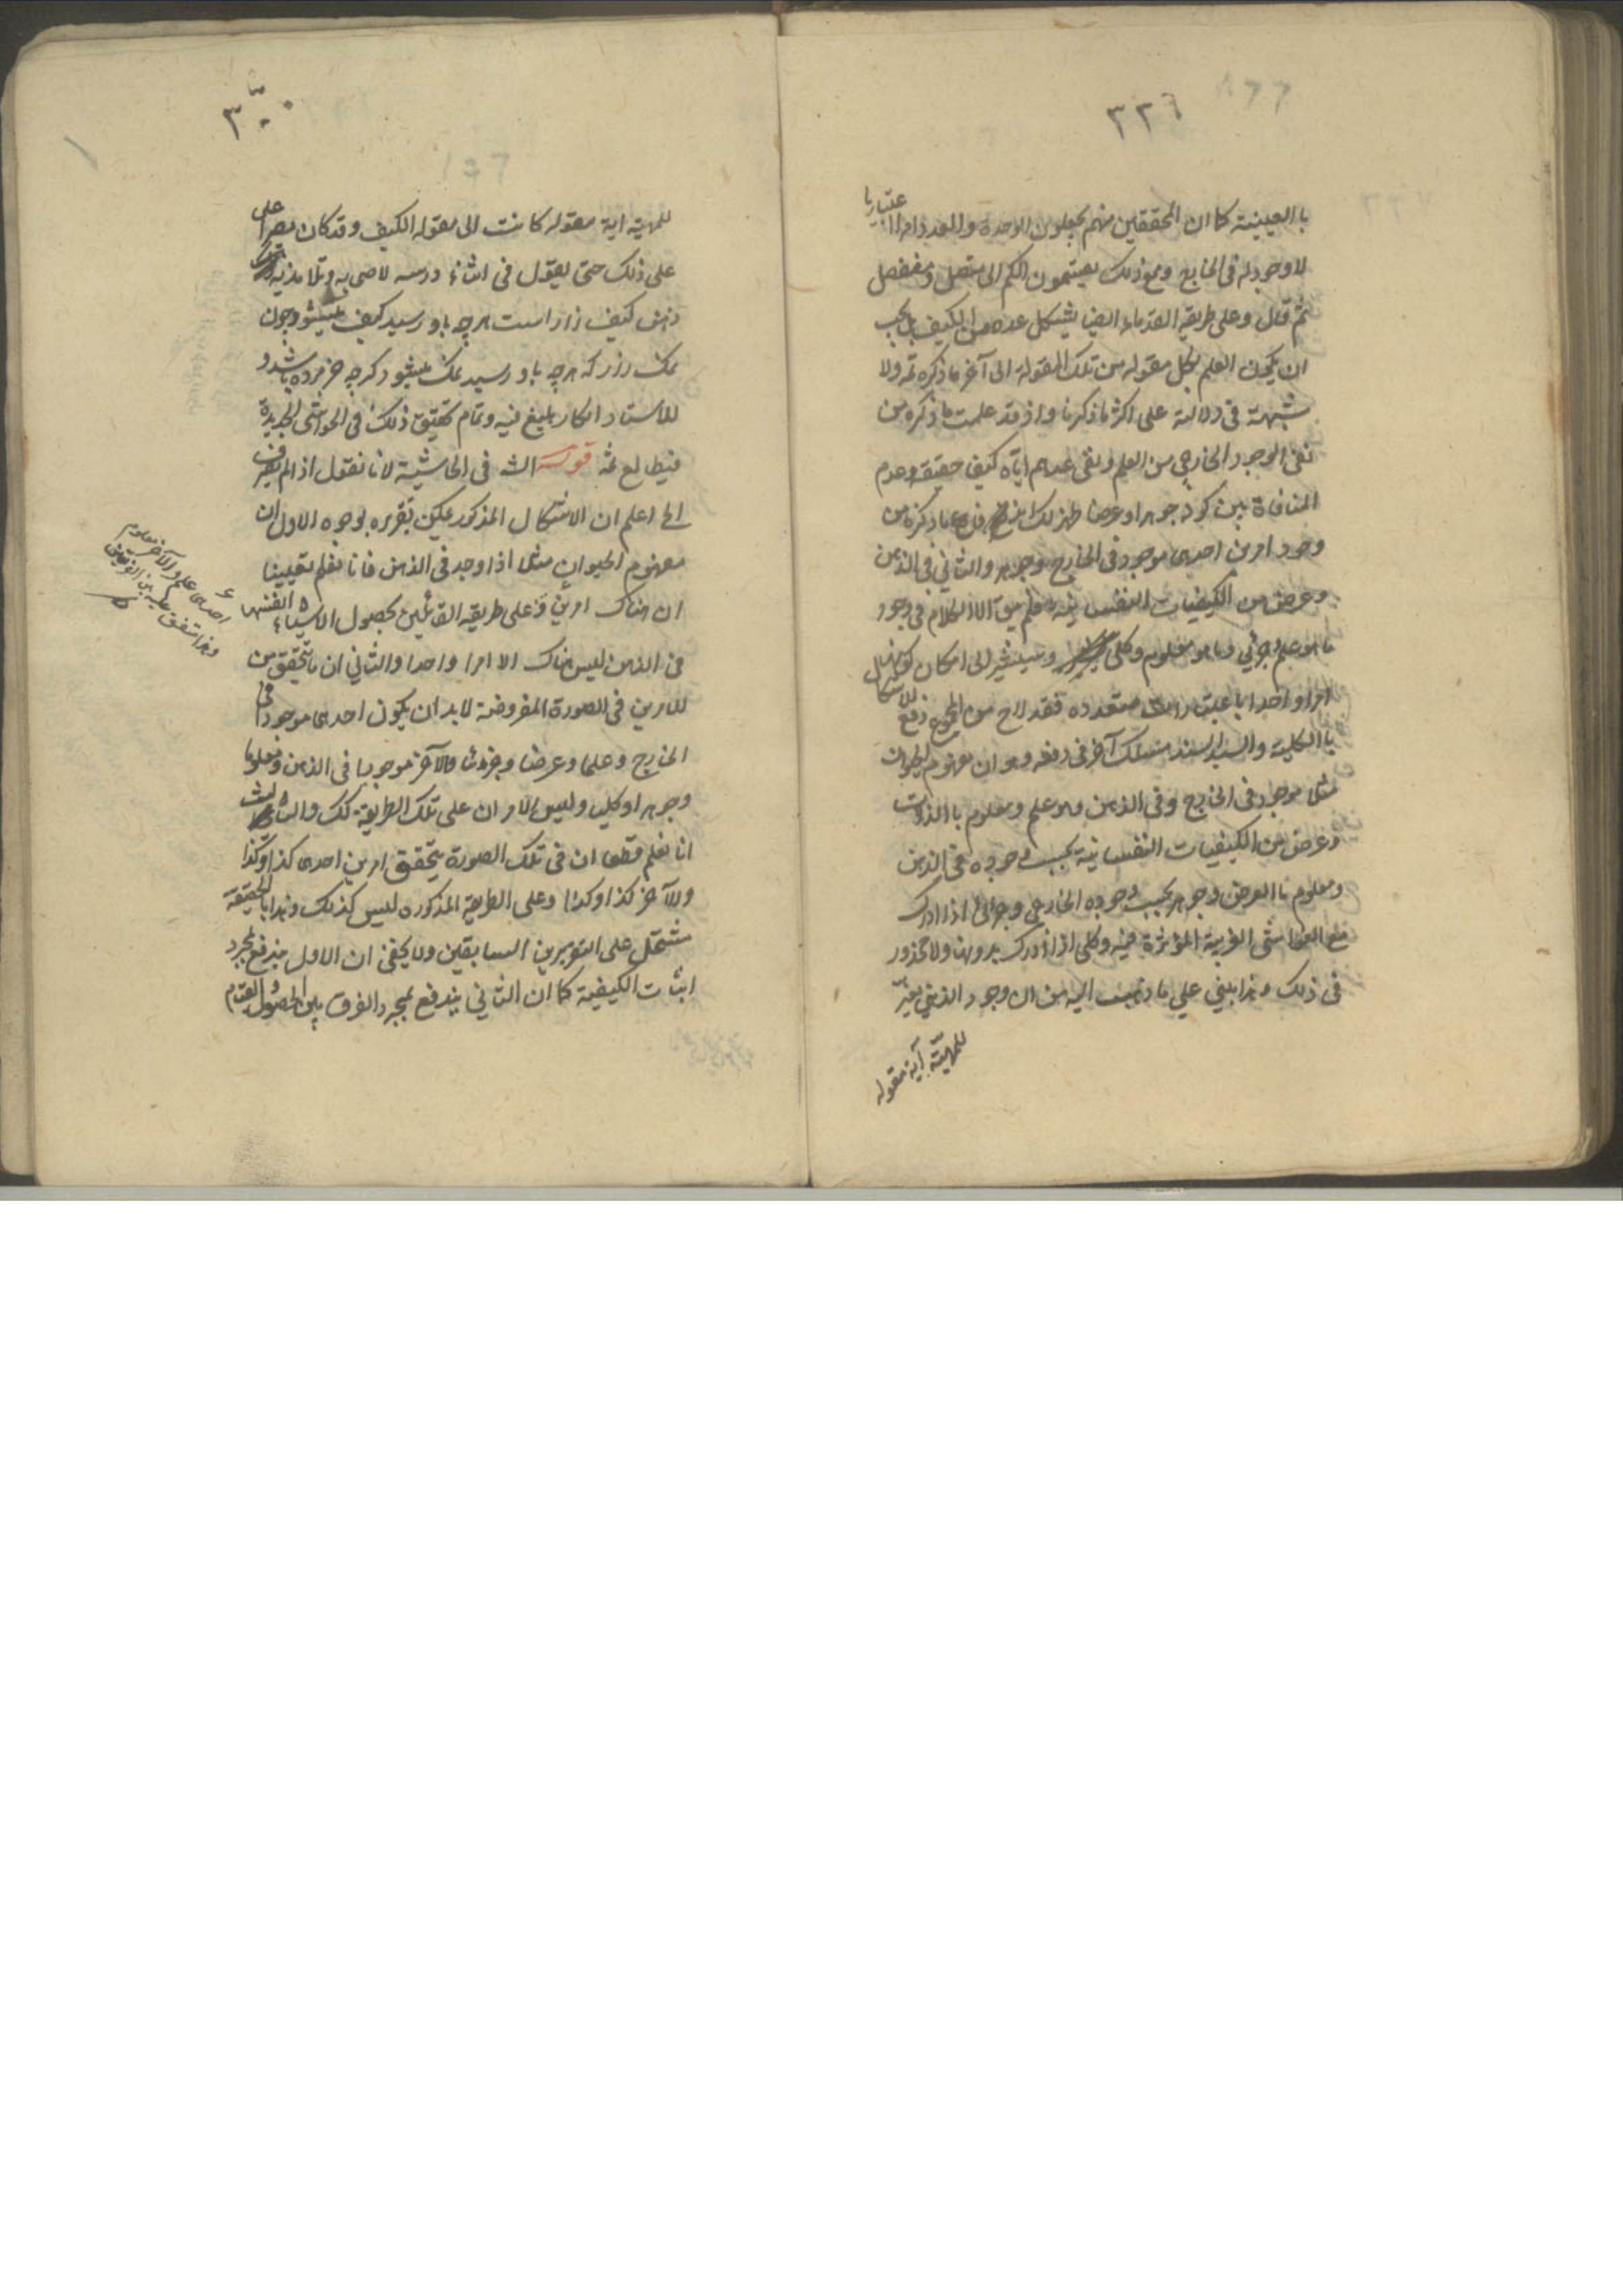 ٣٢٦
باالعينية كما ان المحققين منهم يجعلون الوحدة والعدد امرا اعتباريا
لا وجود له فى الخارج ومع ذلك يقسمون الكم الى متصل ومنفصل
ثم قال وعلى طريقه القدماء ايضا يشكل عده من الكيف بل يجب
ان يكون العلم بكل مقوله من تلك المقولة الى آخر ما ذكره ثمه ولا
شبهة فى دلالته على اكثر ما ذكرنا واذ قد علمت ما ذكره من
نفى الوجود الخارجى من العلم وبقى عدهم اياه كيف حقيقة وعدم
المنافاة بين كونه جوهرا وعرضا ظهر لك ما ذكره من
وجود امرين احدهما موجود فى الخارج وجوهر والثانى فى الذهن
وعرض من الكيفيات النفسانيه فلم يبق الا الكلام فى وجود
ما هو علم وجزئى وما هو معلوم وكلى وسيشير الى امكان كونهما
امرا واحدا باعتبارات متعدده فقد لاح من المجموع دفع الاشكال
باالكلية والسيد السند مسلك آخر فى دفعه وهو ان مفهوم الحيوان
مثلا موجود فى الخارج وفى الذهن وهو علم ومعلوم باالذات
وعرض من الكيفيات النفسانية بحسب وجوده فى الذهن
ومعلوم باالعرض وجوهر بحسب وجوده الخارجى وجزئى اذا ادرك
مع الغواشى الغريبة المؤثرة فيه وكلى اذا ادرك بدونها ولا محذور
فى ذلك وهذا يبنى على ما ذهب اليه من ان وجود الذهنى يغير
للمهيّته آية مقوله
٣٠٠
للمهيته اية مقوله كانت الى مقوله الكيف وقد كان مصرا على
على ذلك حتى يقول فى اثناء درسه لاصحابه وتلامذيه
ذهن كيف زار است هر چه باو رسيد كيف ميشود چون
نمك زار كه هر چه باو رسيد نمك ميشود كرچه خر مرده باشد و
للاستاد انكار بليغ فيه وتمام تحقيق ذلك فى الحواشى الجديدة
فيطالع ثمه قوله الشه فى الحاشية لانا نقول اذ الم يعرف
الخ اعلم ان الاشكال المذكور يمكن تقريره بوجوه الاول ان
مفهوم الحيوان مثلا اذا وجد فى الذهن فانا نعلم يقيينا
ان هناك امرين وعلى طريقه القائلين بحصول الاشياء انفسها
فى الذهن ليس هناك الا امرا واحدا والثانى ان ما يتحقق من
الامرين فى الصورة المفروضة لابد ان يكون احدهما موجودا فى
الخارج وعلما وعرضا وجزئيا والآخر موجودا فى الذهن ومعلوما
وجوهرا وكليا وليس الامران على تلك الطريقة كك والثالث
انا نعلم قطعا ان فى تلك الصورة يتحقق امرين احدهما كذا وكذا
والآخر كذا وكذا وعلى الطريقه المذكوره ليس كذلك وهذا باالحقيقة
مشتمل على التقريرين السابقين ولا يخفى ان الاول يندفع بمجرد
اثبات الكيفية كما ان الثانى يندفع بمجرد الفرق بين الحصول والقيام
احدهما علم والآخر معلوم
وهذا متفق عليه بين الفريقين